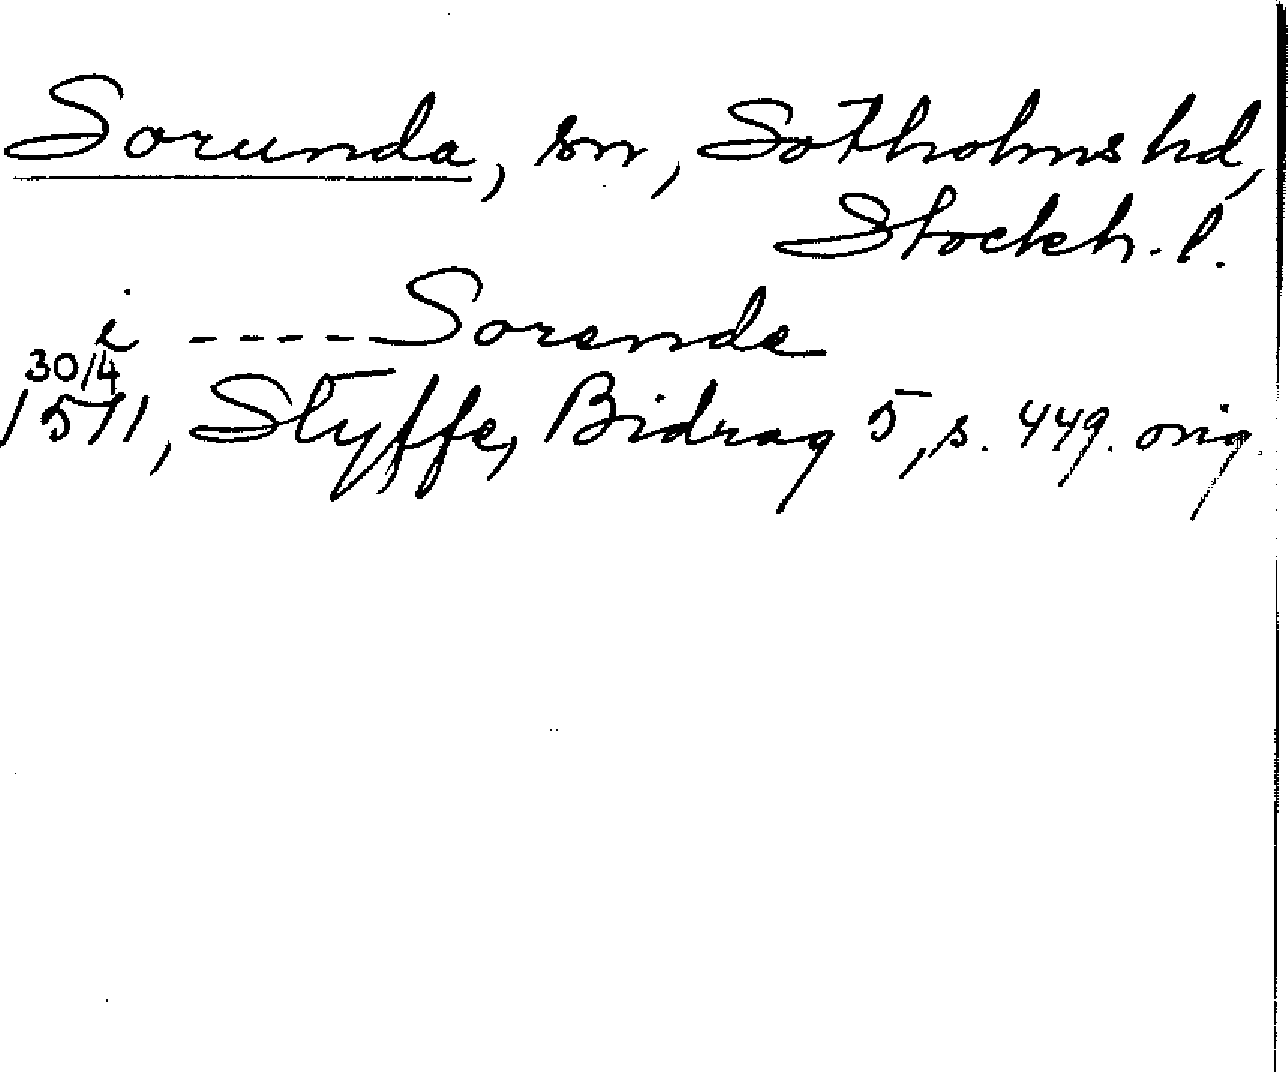 Sorunda, sn, Sotholms hd,
Stockh. l.
i ----- Sorende
30/4
1511, Styffe, Bidrag 5, s. 449. orig.